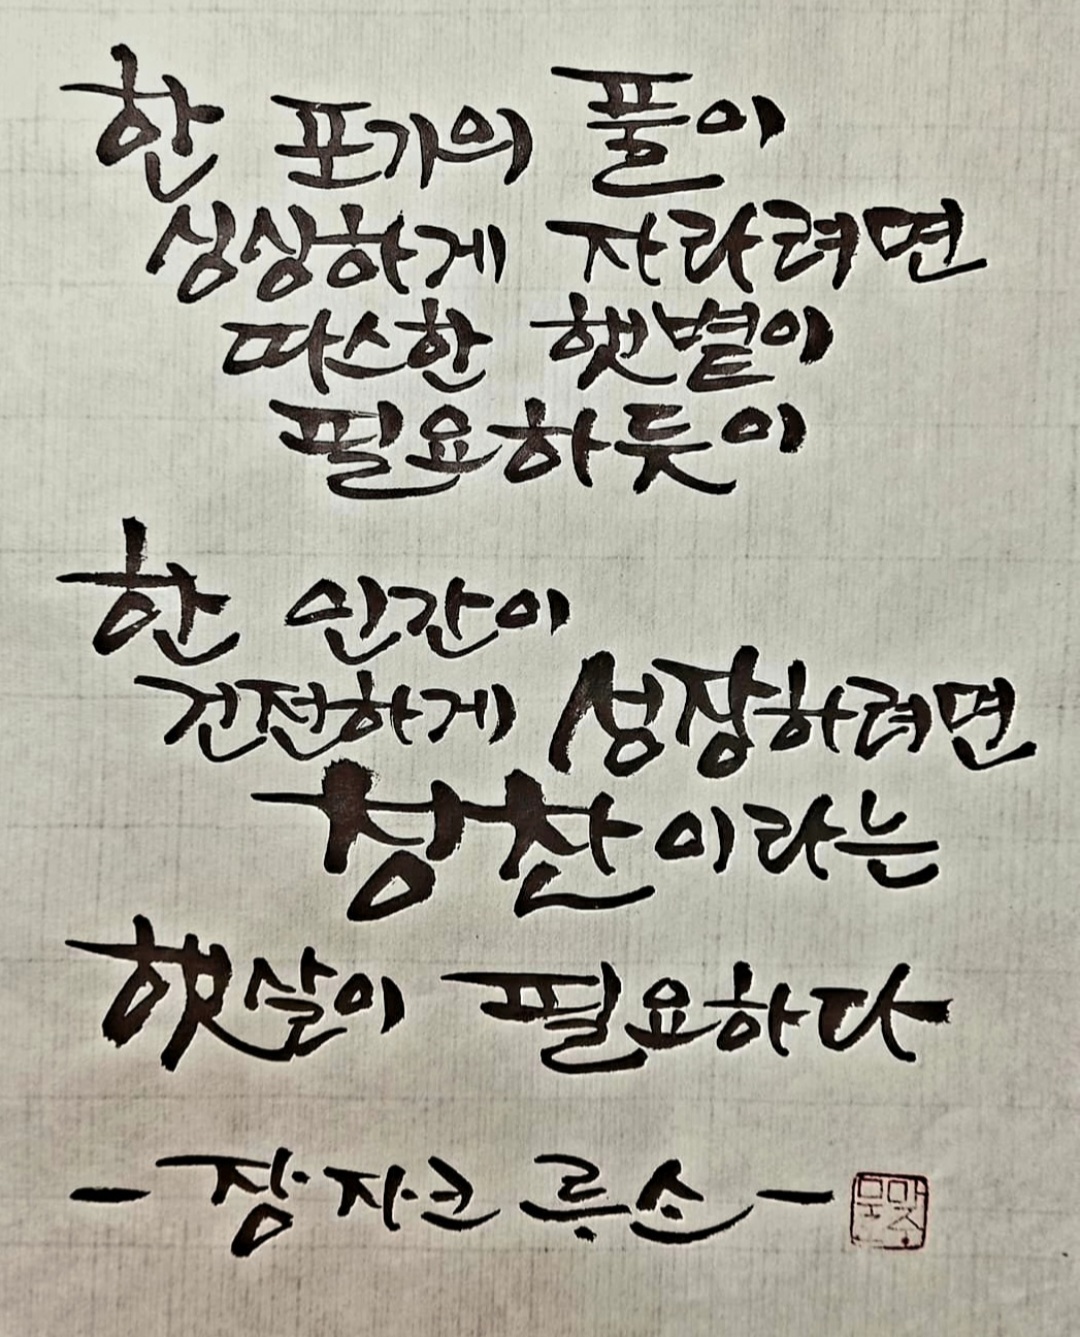 한 포기의 풀이
싱싱하게 자라려면
따스한 햇볕이
필요하듯이
한 인간이
건전하게 성장하려면
칭찬이라는
햇살이 필요하다
- 장.자크 루소 -